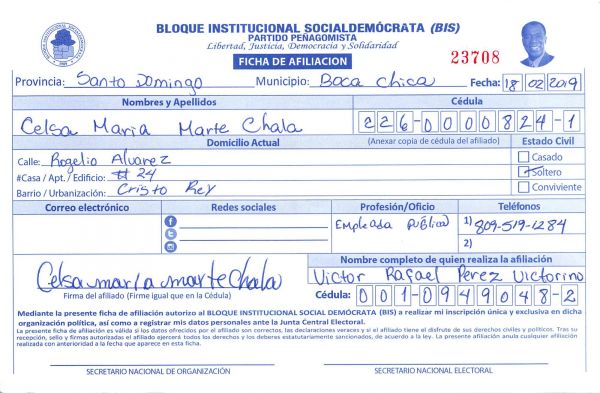 BLOQUE INSTITUCIONAL SOCIALDEMÓCRATA (BIS)
PARTIDO PEÑAGOMISTA
Libertad, Justicia, Democracia y Solidaridad
FICHA DE AFILIACION
23708
Provincia: Santo Domingo Municipio: Boca chica Fecha: 18 02 2019
Nombres y Apellidos Cédula
Celsa Maria Marte Chala 226-0000824-1
Domicilio Actual (Anexar copia de cédula del afiliado) Estado Civil
Calle: Rogelio Alvarez Casado
#Casa / Apt. / Edificio: # 24 Soltero
Barrio / Urbanización: Cristo Rey Conviviente
Correo electrónico Redes sociales Profesión/Oficio Teléfonos
Empleada pública 1) 809-519-1284
2)
Nombre completo de quien realiza la afiliación
Celsa maria marte chala Victor Rafael Perez Victorino
Firma del afiliado (Firme igual que en la Cédula) Cédula: 001-0949048-2
Mediante la presente ficha de afiliación autorizo al BLOQUE INSTITUCIONAL SOCIAL DEMÓCRATA (BIS) a realizar mi inscripción única y exclusiva en dicha
organización política, así como a registrar mis datos personales ante la Junta Central Electoral.
La presente ficha de afiliación es válida si los datos ofrecidos por el afiliado son correctos, las declaraciones veraces y si el afiliado tiene el disfrute de sus derechos civiles y políticos. Tras su
recepción, sello y firmas autorizadas el afiliado ejercerá todos los derechos y los deberes estatutariamente sancionados, de acuerdo a la ley. La presente afiliación anula cualquier afiliación
realizada con anterioridad a la fecha que aparece en esta ficha.
SECRETARIO NACIONAL DE ORGANIZACIÓN SECRETARIO NACIONAL ELECTORAL